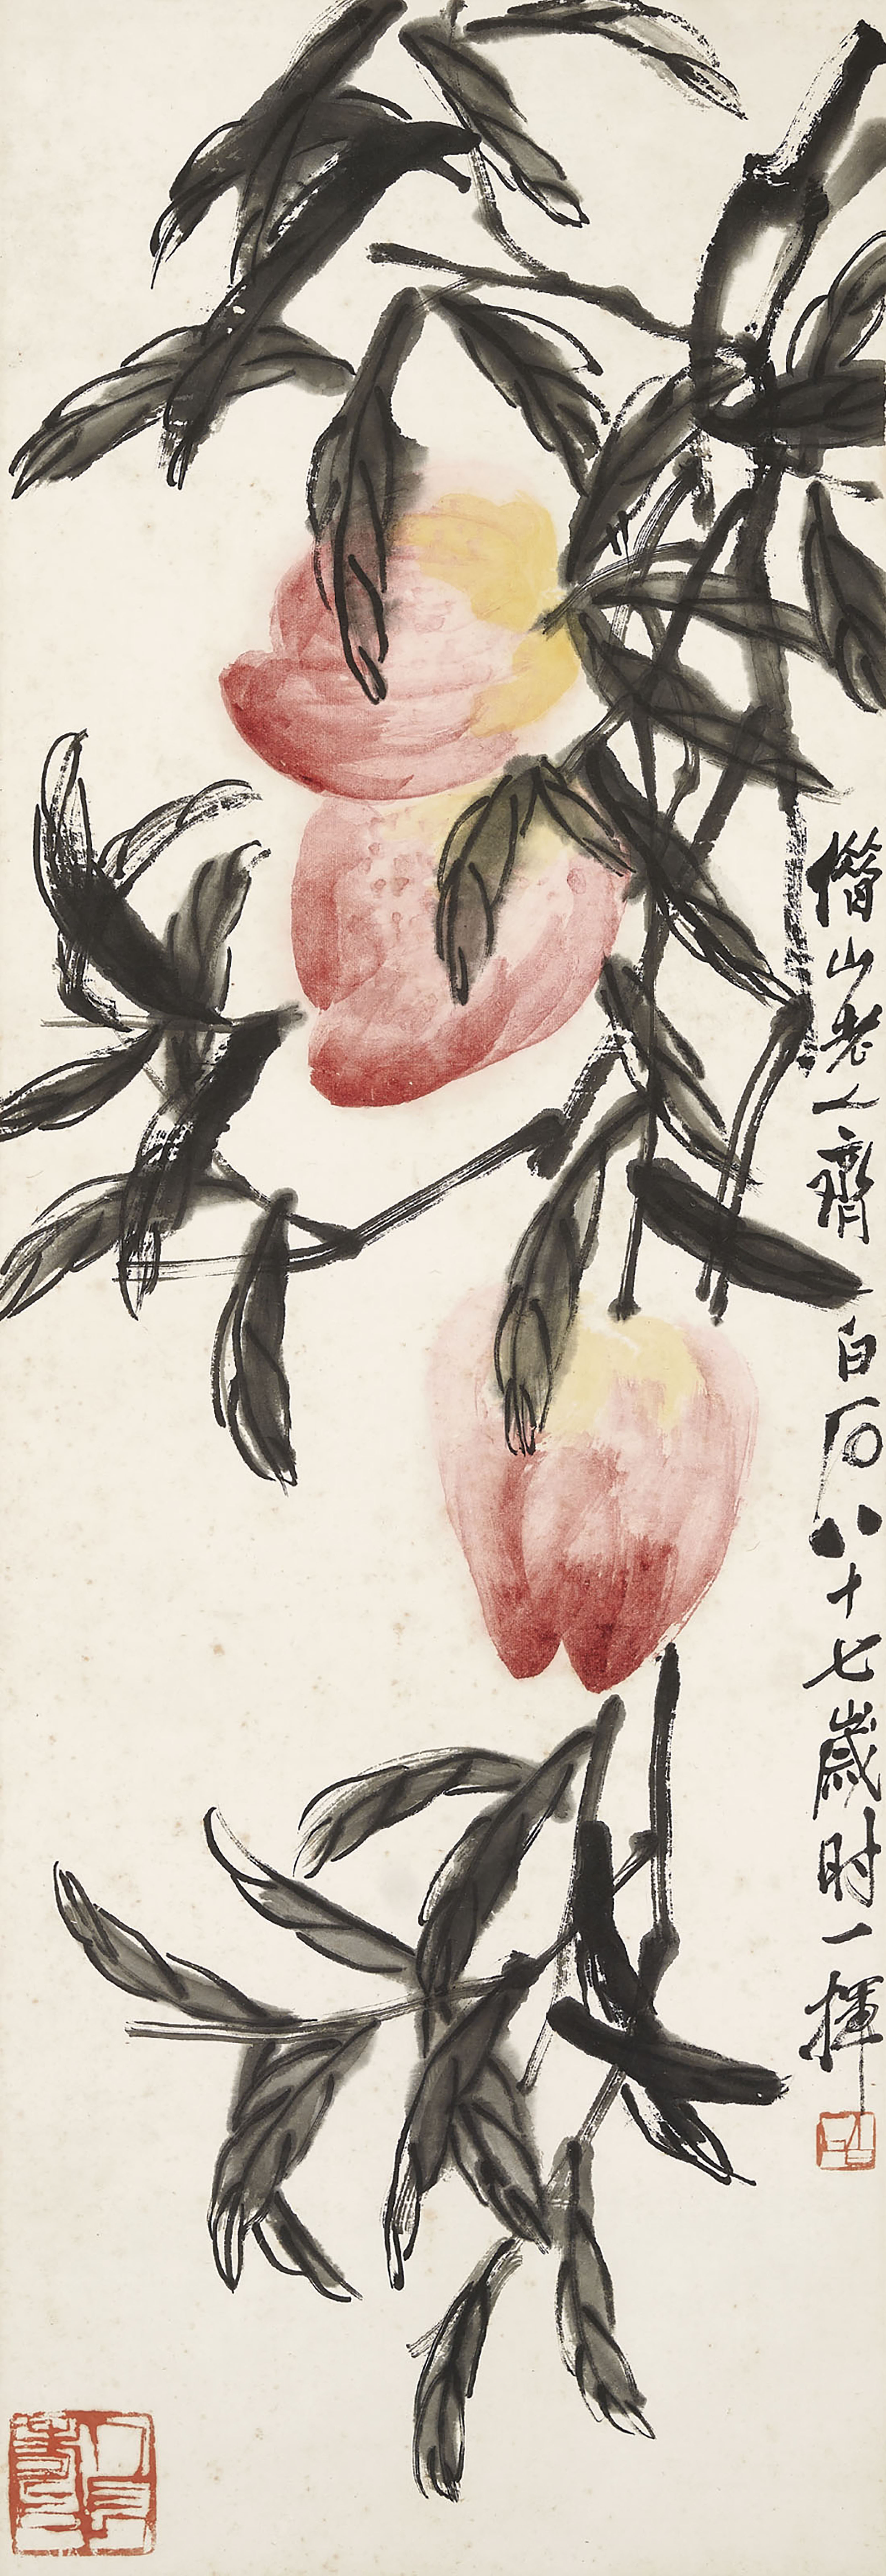 借山老人齊白石八十七歲时一揮
白石